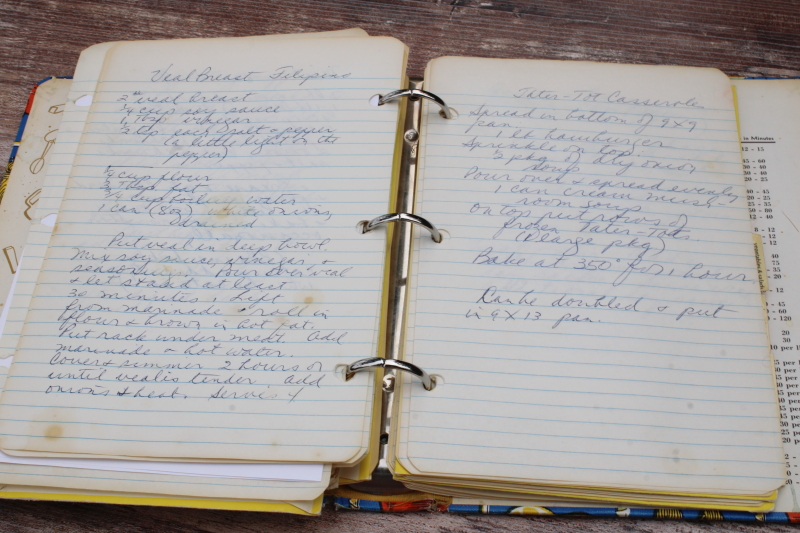 Veal Breast Filipino
2# veal breast
1/4 cup soy sauce
1 Tbsp vinegar
1/2 tsp each salt & pepper
(a little light on the
pepper)
1/4 cup flour
3 Tbsp fat
3/4 cup boiling water
1 can (8oz) white onions,
drained
Put veal in deep bowl
Mix soy sauce, vinegar &
seasoning. Pour over veal
& let stand at least
30 minutes. Lift
from marinade roll in
flour & brown in hot fat.
Put rack under meat. Add
marinade & hot water.
Cover & simmer 2 hours or
until veal is tender. Add
onions & heat. Serves 4
Tater-Tot Casserole
Spread in bottom of 9x9
pan
1 lb hamburger
Sprinkle on top
1/2 pkg of dry onion
soup
Pour over & spread evenly
1 can cream mush-
room soup
On top put rows of
frozen Tater-Tots
(large pkg)
Bake at 350° for 1 hour.
Can be doubled & put
in 9x13 pan.
in Minutes
12 - 15